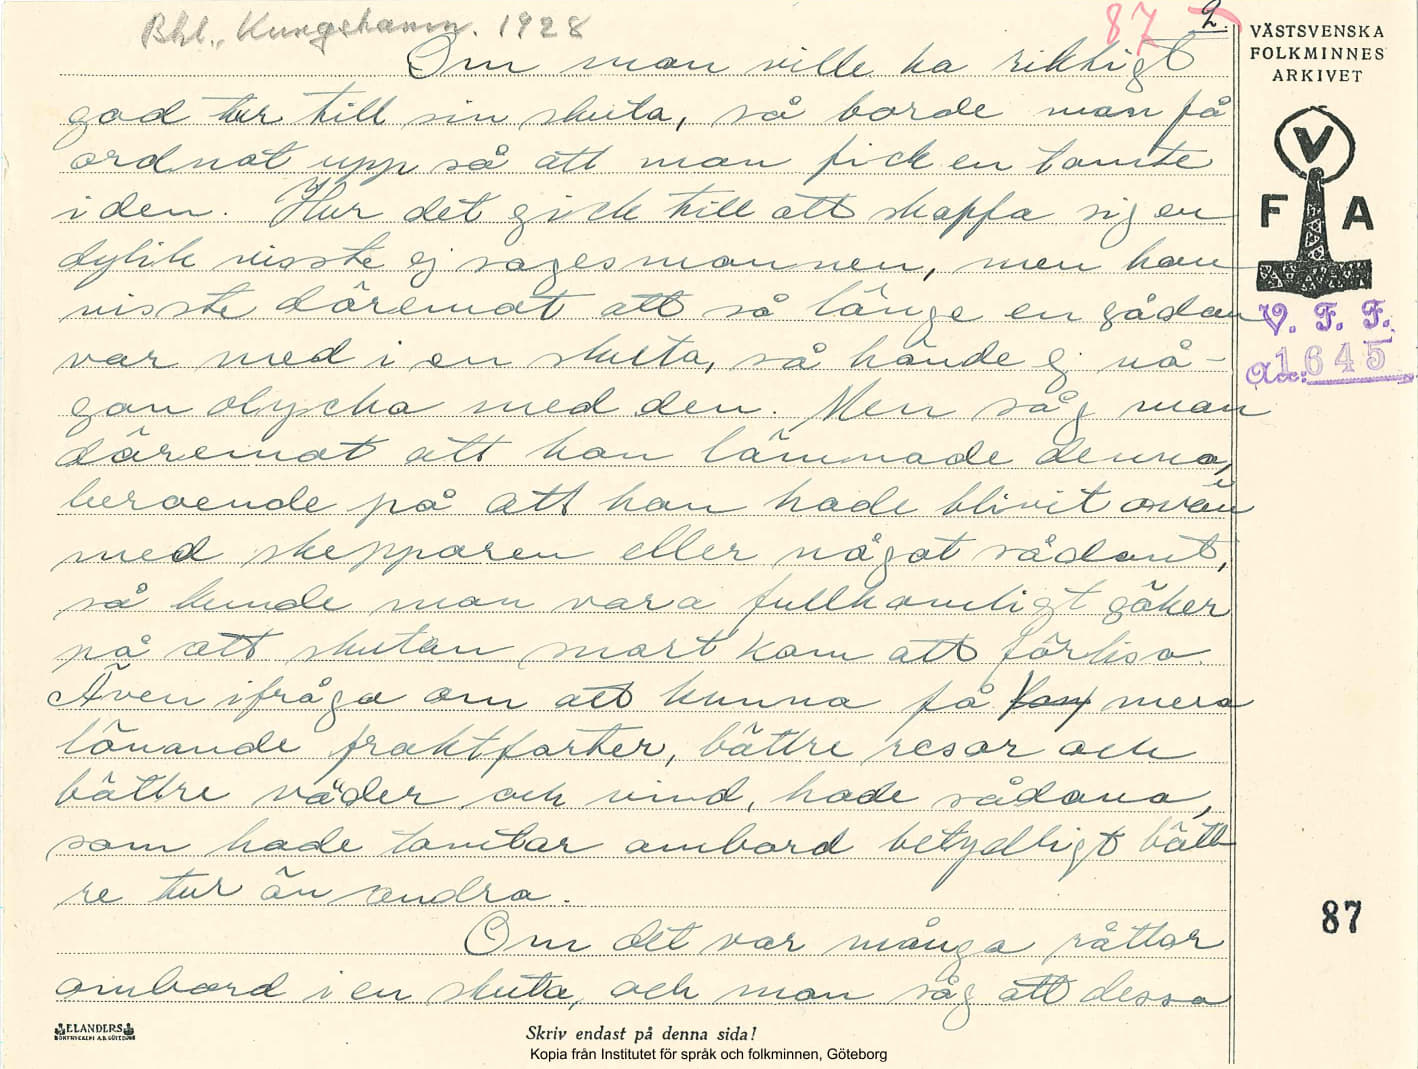 Bhl., Kungshamn. 1928
87 2.
VÄSTSVENSKA
FOLKMINNES
ARKIVET
Om man ville ha riktigt
god tur till sin skuta, så borde man få
ordnat upp så att man fick en tomte
i den. Hur det gick till att skaffa sig en
dylik visste ej sagesmannen, men han
visste däremot att så länge en sådan
var med i en skuta, så hände ej nå-
gon olycka med den. Men såg man
däremot att han lämnade denna,
beroende på att han hade blivit ovän
med skepparen eller något sådant,
så kunde man vara fullkomligt säker
på att skutan snart kom att förlisa.
Även ifråga om att kunna få mera
lönande fraktfarter, bättre resor och
bättre väder och vind, hade sådana,
som hade tomtar ombord betydligt bätt
re tur än andra.
Om det var många råttor
ombord i en skuta, och man såg att dessa
V
F A
V. F. F.
Acc: 1645
87
ELANDERS
BOKTRYCKERI A.B. GÖTEBORG
Skriv endast på denna sida!
Kopia från Institutet för språk och folkminnen, Göteborg